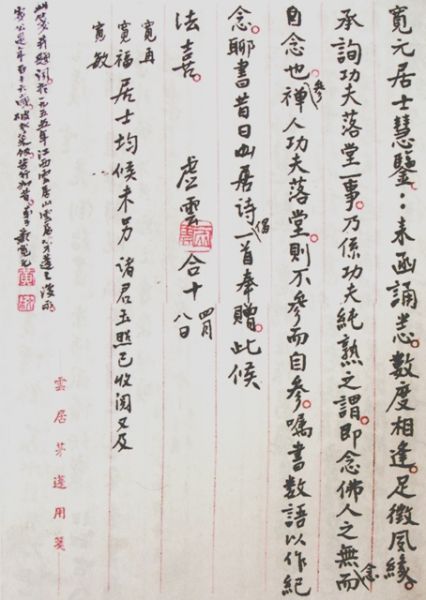 寬元居士慧鑒：来函誦悉。數度相逢。足徵夙緣。
承詢功夫落堂一事。乃係功夫純熟之謂。即念佛人之無念而
自念也。參禪人功夫落堂。則不參而自參。囑書數語以作紀
念。聊書昔日山居詩偈一首奉贈。此候
法喜。 虛雲 合十 四月八日
寬再
寬福 居士均候未另 諸君玉照已收閱又及
寬敏
雲居茅蓬用箋
此箋并題詞。於一九五五年江西雲居山雲居茅蓬